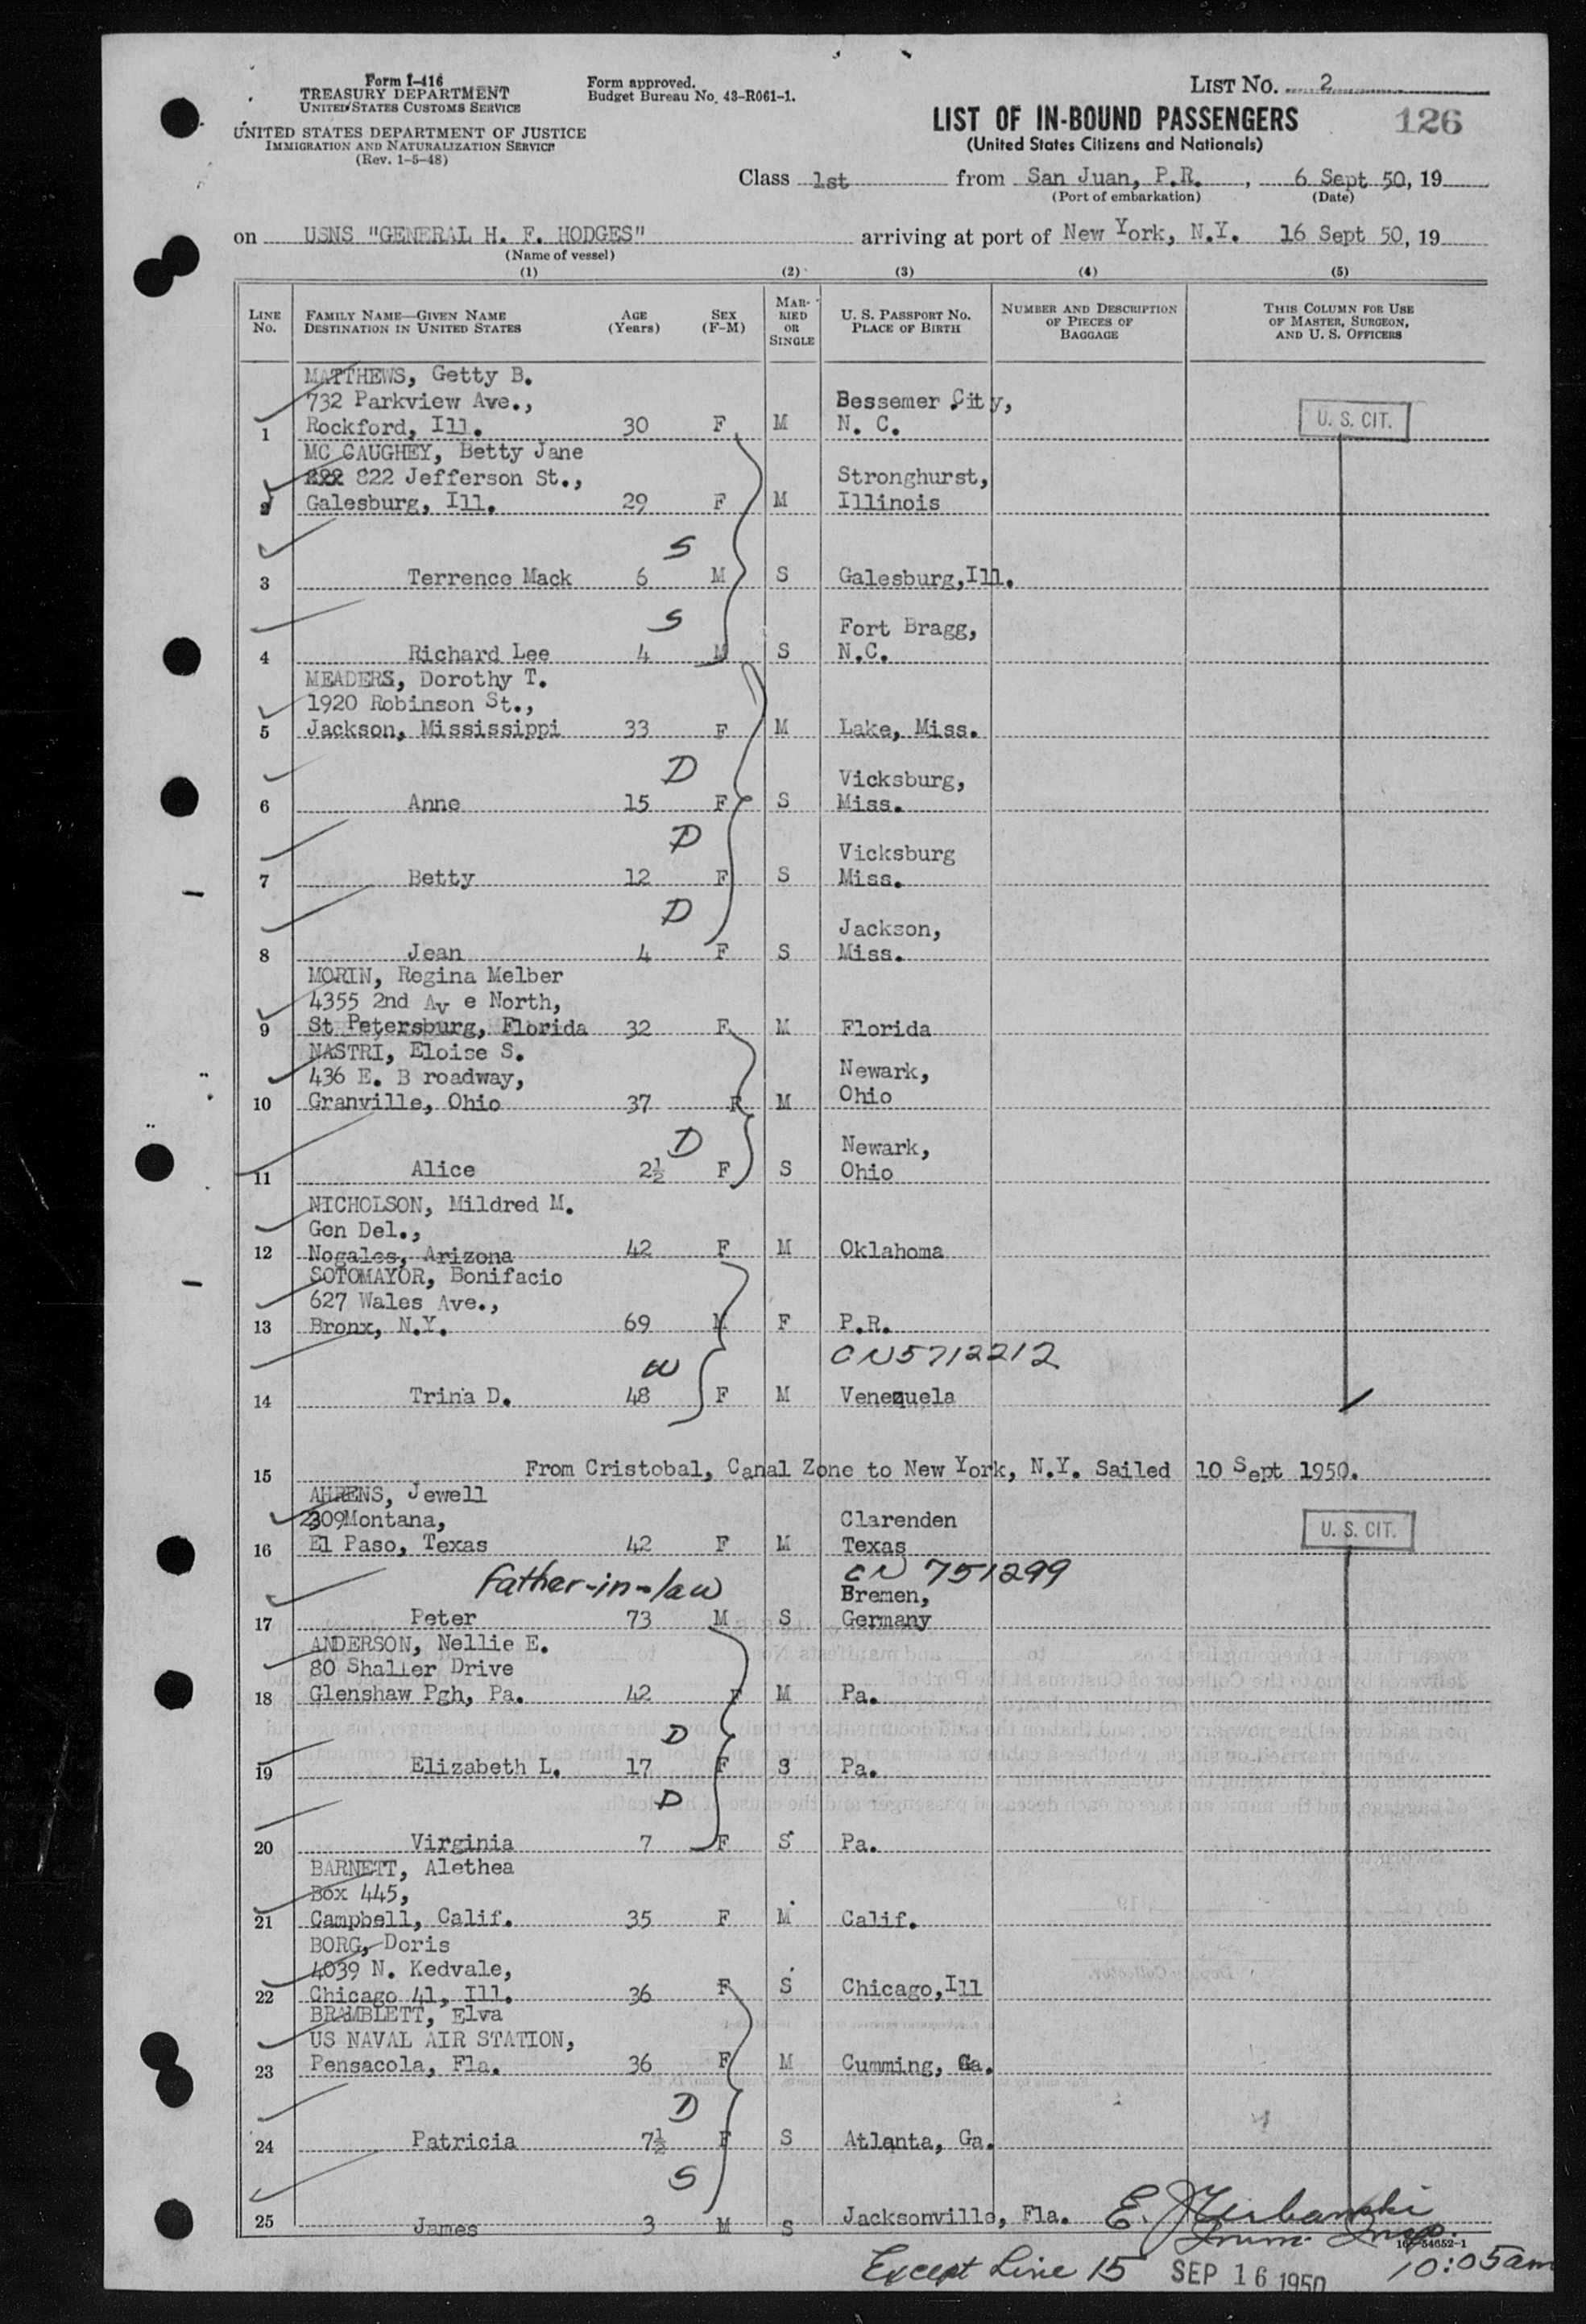 Form I-416
TREASURY DEPARTMENT
UNITED STATES CUSTOMS SERVICE
UNITED STATES DEPARTMENT OF JUSTICE
IMMIGRATION AND NATURALIZATION SERVICE
(Rev. 1-5-48)
Form approved.
Budget Bureau No. 43-R061-1.
LIST NO. 2
LIST OF IN-BOUND PASSENGERS
126
(United States Citizens and Nationals)
Class 1st from San Juan, P.R., 6 Sept 50, 19
(Port of embarkation) (Date)
on USNS "GENERAL H. F. HODGES" arriving at port of New York, N.Y. 16 Sept 50, 19
(Name of vessel)
(1) (2) (3) (4) (5)
LINE NO. FAMILY NAME—GIVEN NAME DESTINATION IN UNITED STATES AGE (Years) SEX (F-M) MARRIED OR SINGLE U. S. PASSPORT NO. PLACE OF BIRTH NUMBER AND DESCRIPTION OF PIECES OF BAGGAGE THIS COLUMN FOR USE OF MASTER, SURGEON, AND U. S. OFFICERS
MATTHEWS, Getty B.
732 Parkview Ave., Bessemer City,
1 Rockford, Ill. 30 F M N. C. U. S. CIT.
MC CAUGHEY, Betty Jane
822 822 Jefferson St., Stronghurst,
2 Galesburg, Ill. 29 F M Illinois
S
3 Terrence Mack 6 M S Galesburg, Ill.
S Fort Bragg,
4 Richard Lee 4 M S N.C.
MEADERS, Dorothy T.
1920 Robinson St.,
5 Jackson, Mississippi 33 F M Lake, Miss.
D Vicksburg,
6 Anne 15 F S Miss.
D Vicksburg
7 Betty 12 F S Miss.
D Jackson,
8 Jean 4 F S Miss.
MORIN, Regina Melber
4355 2nd Av e North,
9 St Petersburg, Florida 32 F M Florida
NASTRI, Eloise S.
436 E. B roadway, Newark,
10 Granville, Ohio 37 F M Ohio
D Newark,
11 Alice 2½ F S Ohio
NICHOLSON, Mildred M.
Gen Del.,
12 Nogales, Arizona 42 F M Oklahoma
SOTOMAYOR, Bonifacio
627 Wales Ave.,
13 Bronx, N.Y. 69 M F P.R.
W CN5712212
14 Trina D. 48 F M Venezuela
15 From Cristobal, Canal Zone to New York, N.Y. Sailed 10 Sept 1950.
AHRENS, Jewell
2309Montana, Clarenden
16 El Paso, Texas 42 F M Texas U. S. CIT.
father-in-law CN 751299
Bremen,
17 Peter 73 M S Germany
ANDERSON, Nellie E.
80 Shaller Drive
18 Glenshaw Pgh, Pa. 42 F M Pa.
D
19 Elizabeth L. 17 F S Pa.
D
20 Virginia 7 F S Pa.
BARNETT, Alethea
Box 445,
21 Campbell, Calif. 35 F M Calif.
BORG, Doris
4039 N. Kedvale,
22 Chicago 41, Ill. 36 F S Chicago, Ill
BRAMBLETT, Elva
US NAVAL AIR STATION,
23 Pensacola, Fla. 36 F M Cumming, Ga.
D
24 Patricia 7½ F S Atlanta, Ga.
S
25 James 3 M S Jacksonville, Fla.
Imm. Insp.
16-54652-1
Except Line 15 SEP 16 1950 10:05am